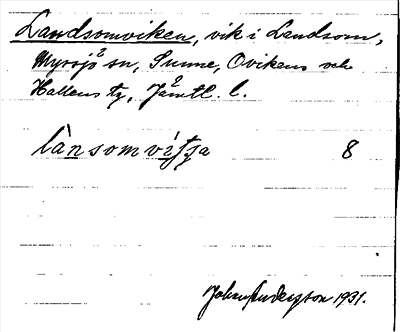 Landsomviken, vik i Landsom,
Myssjö sn, Sunne, Ovikens och
Hallens tg, Jämtl. l.
lànsomvit̯ja 8
Johan Anderzson 1931.